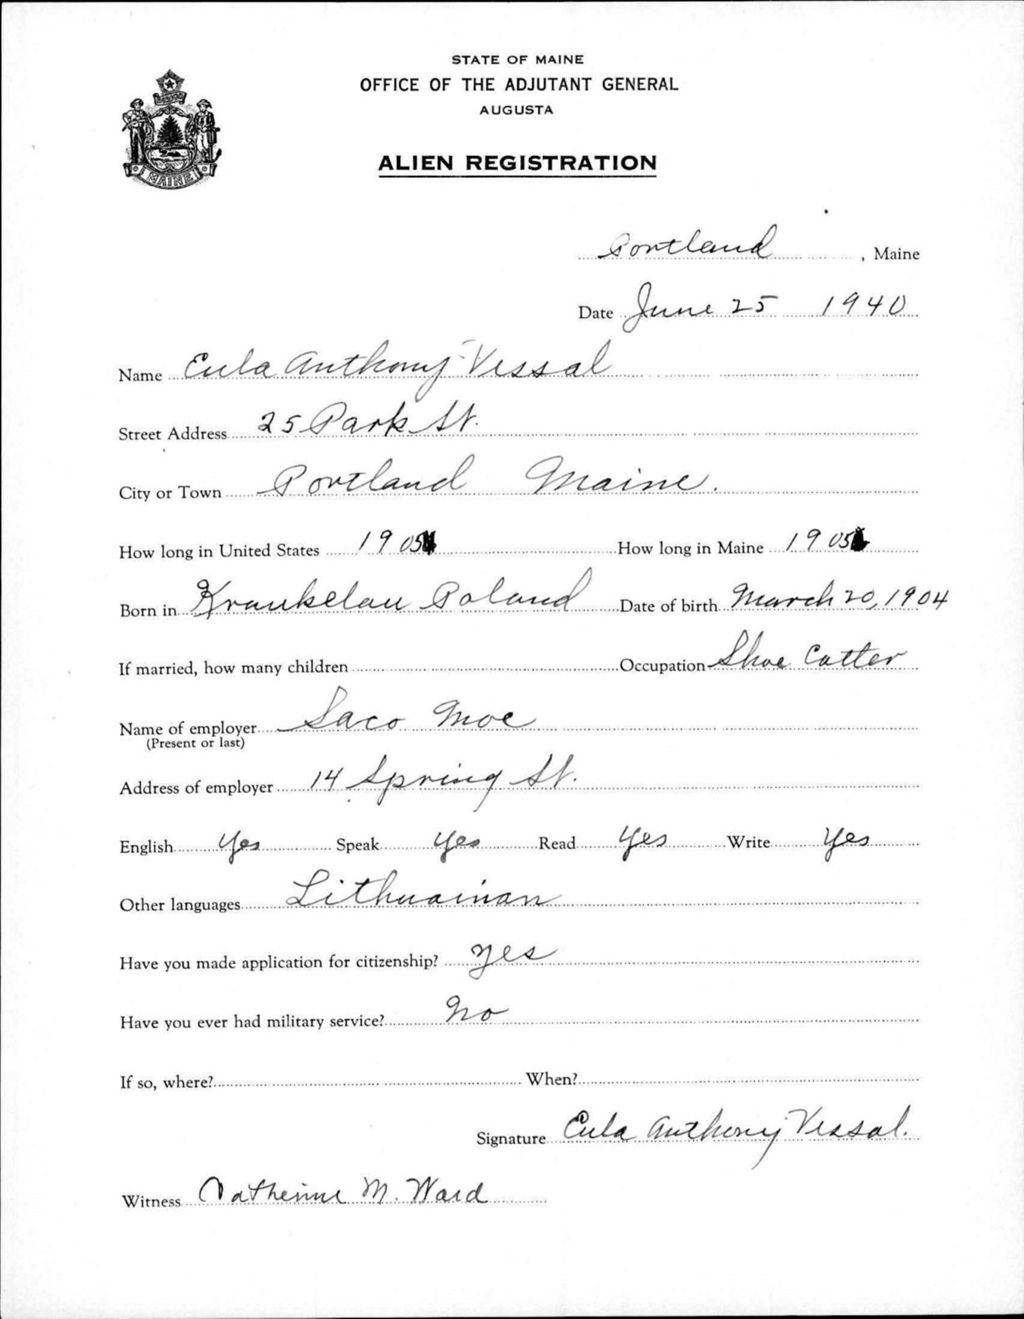 STATE OF MAINE
OFFICE OF THE ADJUTANT GENERAL
AUGUSTA
MAINE
ALIEN REGISTRATION
Portland, Maine
Date June 25 1940
Name Eula Anthony Vessal
Street Address 25 Park St.
City or Town Portland Maine.
How long in United States 1905 How long in Maine 1905
Born in Kraukelau Poland Date of birth March 20, 1904
If married, how many children Occupation Shoe Cutter
Name of employer Saco Moc
(Present or last)
Address of employer 14 Spring St.
English Yes Speak Yes Read Yes Write Yes
Other languages Lithuainan
Have you made application for citizenship? Yes
Have you ever had military service? No
If so, where? When?
Signature Eula Anthony Vessal.
Witness Catherine M. Ward